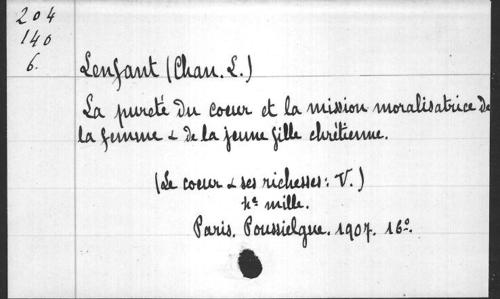 204
140
6.
Lenfant (Chan. L.)
La pureté du coeur et la mission moralisatrice de
la femme & de la jeune fille chrétienne.
(Le coeur & ses richesses: V.)
mille.
Paris. Poussielgue. 1907. 16º.